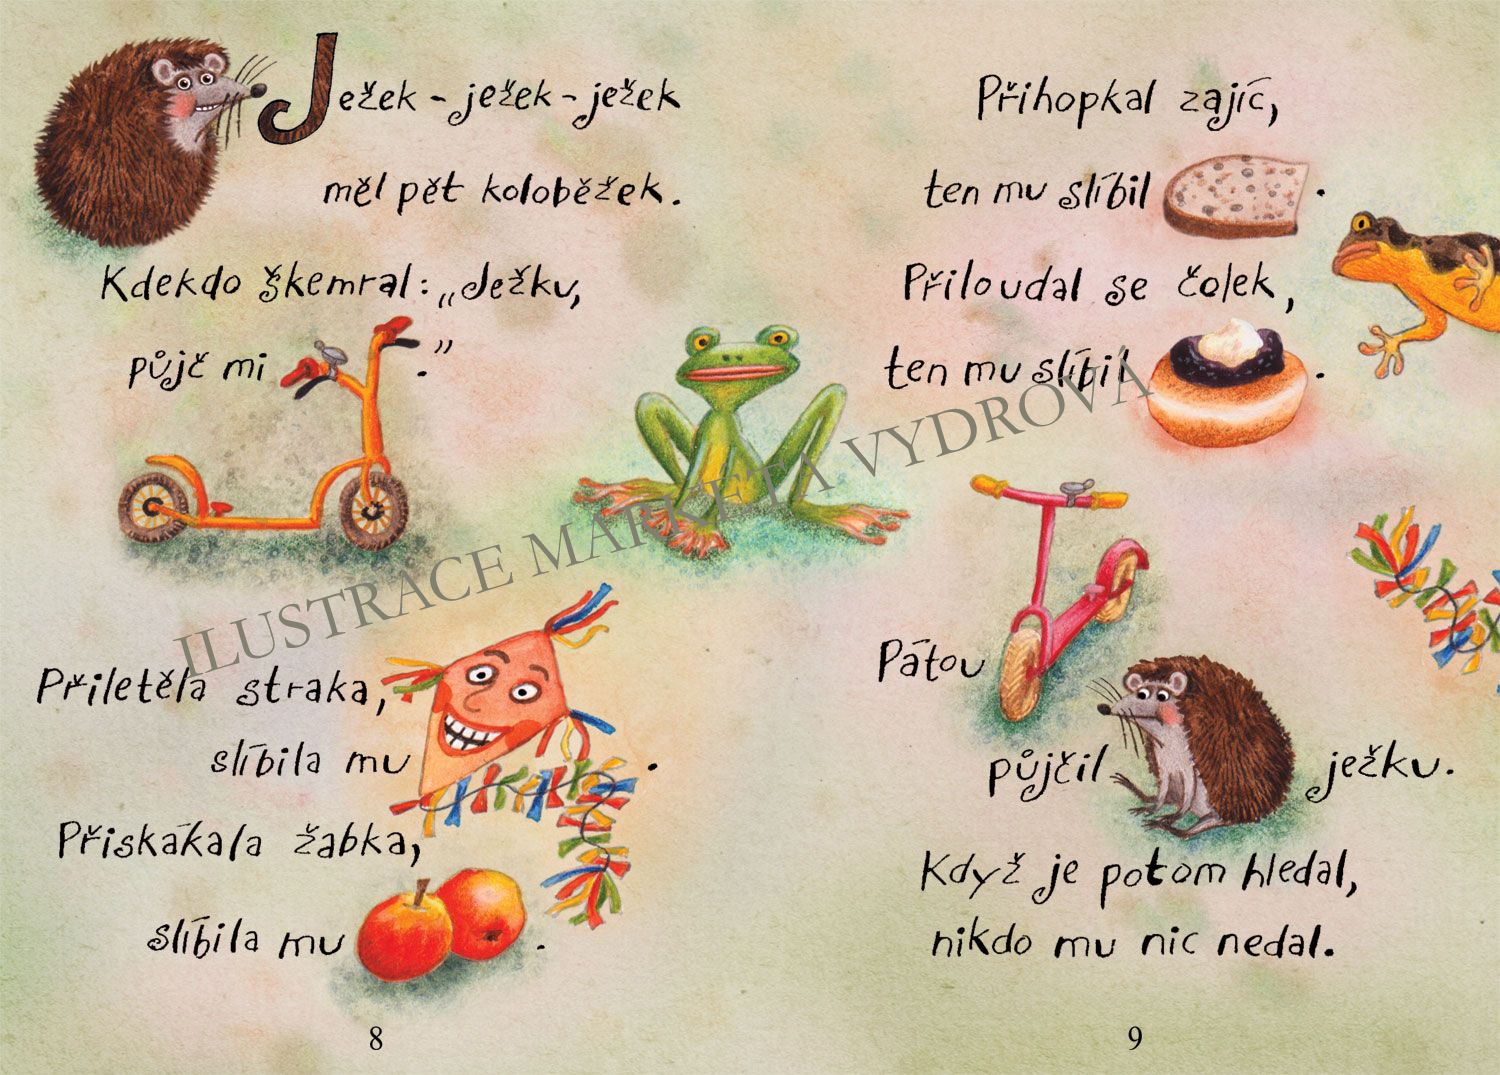 Ježek - ježek - ježek
měl pět koloběžek.
Kdekdo škemral: „Ježku,
půjč mi .“
Přiletěla straka,
slíbila mu .
Přiskákala žabka,
slíbila mu .
8
Přihopkal zajíc,
ten mu slíbil .
Přiloudal se čolek,
ten mu slíbil .
Pátou
půjčil ježku.
Když je potom hledal,
nikdo mu nic nedal.
9
ILUSTRACE MARKÉTA VYDROVÁ